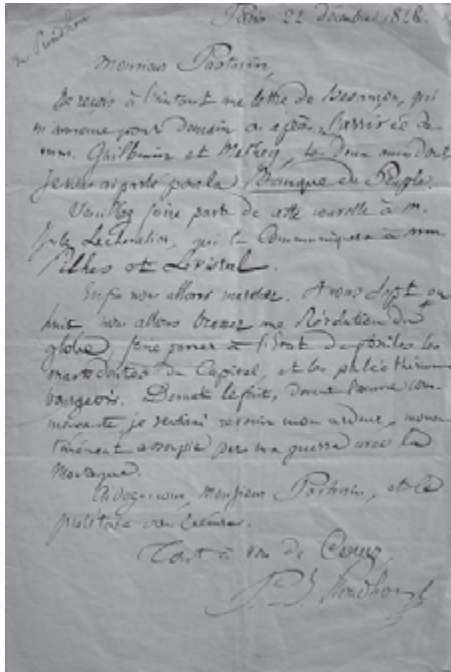 de Proudhon
Paris 22 décembre, 1848.
Monsieur
Je reçois à l'instant une lettre de Besançon, qui
m'annonce pour demain ou après l'arrivée de
mm. Guillemin et Mathey, les deux amis dont
je vous ai parlé pour la Banque du Peuple.
Veuillez faire part de cette nouvelle à M.
Jules Lechevalier, qui la communiquera à mm.
Pilhes et
Enfin nous allons marcher. À nous sept ou
huit nous allons une Révolution du
globe, faire passer à l'état de fossiles les
mastodontes du Capital, et les paléothériums
bourgeois. Devant le fait, devant l'œuvre com-
mençante, je sentirai revenir mon ardeur, momen-
tanément assoupie par ma guerre avec la
Montagne.
Monsieur et le

Tout à vous de Cœur,
P. J. Proudhon